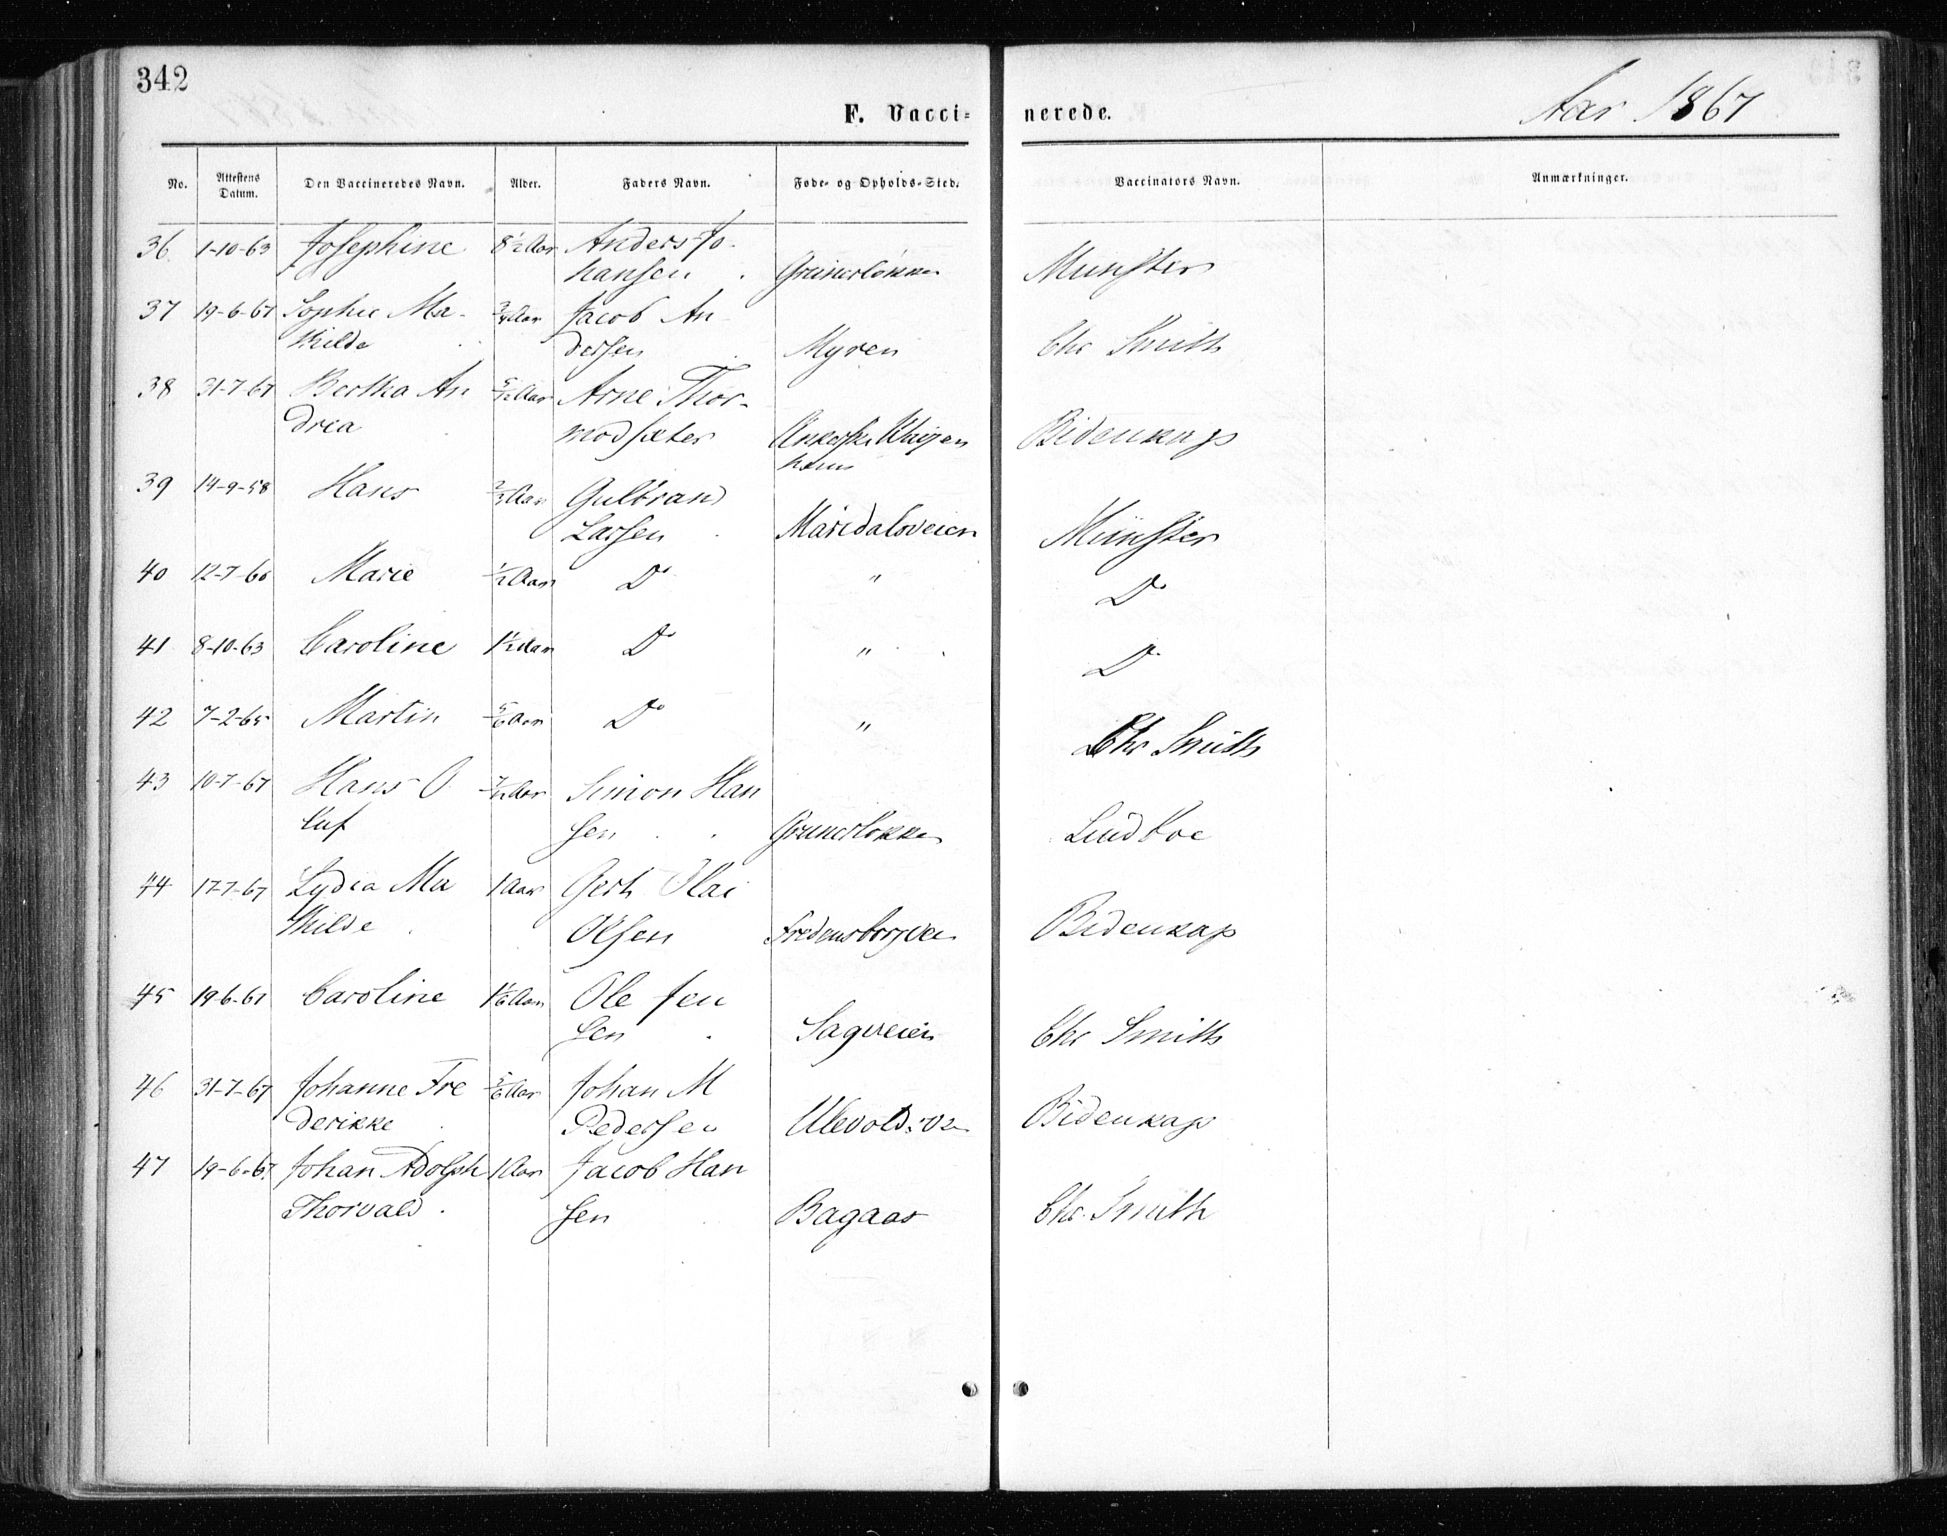 342
F. Vacci-
nerede.
Aar 1867
No. Attestens Datum. Den Vaccineredes Navn. Alder. Faders Navn. Føde- og Opholds-Sted. Vaccinators Navn. Anmærkninger.
36 1-10-63 Josephine 8½ Aar Anders Jo-
hansen Grünerløkken Munster
37 19-6-67 Sophie Ma- ¾ Aar Jacob An-
thilde dersen Myren Chr Smith
38 31-7-67 Bertha An 5/12 Aar Arne Thor-
drea modsæter Bidenkap
39 14-9-58 Hans ⅔ Aar Gulbrand
Larsen Maridalsveien Münster
40 12-7-60 Marie ½ Aar Do " Do
41 8-10-63 Caroline 1½ Aar Do " Do
42 7-2-65 Martin 5/6 Aar Do " Chr Smith
43 10-7-67 Hans O 7/12 Aar Simon Han
luf sen Grünerløkken Lindboe
44 17-7-67 Lydia Ma 1 Aar Gerh Olai
thilde Olsen Fredensborgvei Bidenkap
45 19-6-67 Caroline 1 1/6 Aar Ole Jen
sen Sagveien Chr Smith
46 31-7-67 Johanne Fre 5/6 Aar Johan M
derikke Pedersen Ulevoldsve Bidenkap
47 19-6-67. Johan Adolph 1 Aar Jacob Han
Thorvald. sen Bagaas Chr. Smith